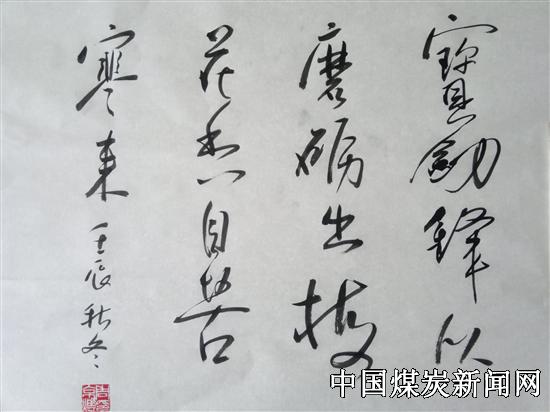 寶劍鋒从
磨砺出梅
花香自苦
寒来 壬辰秋冬
中国煤炭新闻网